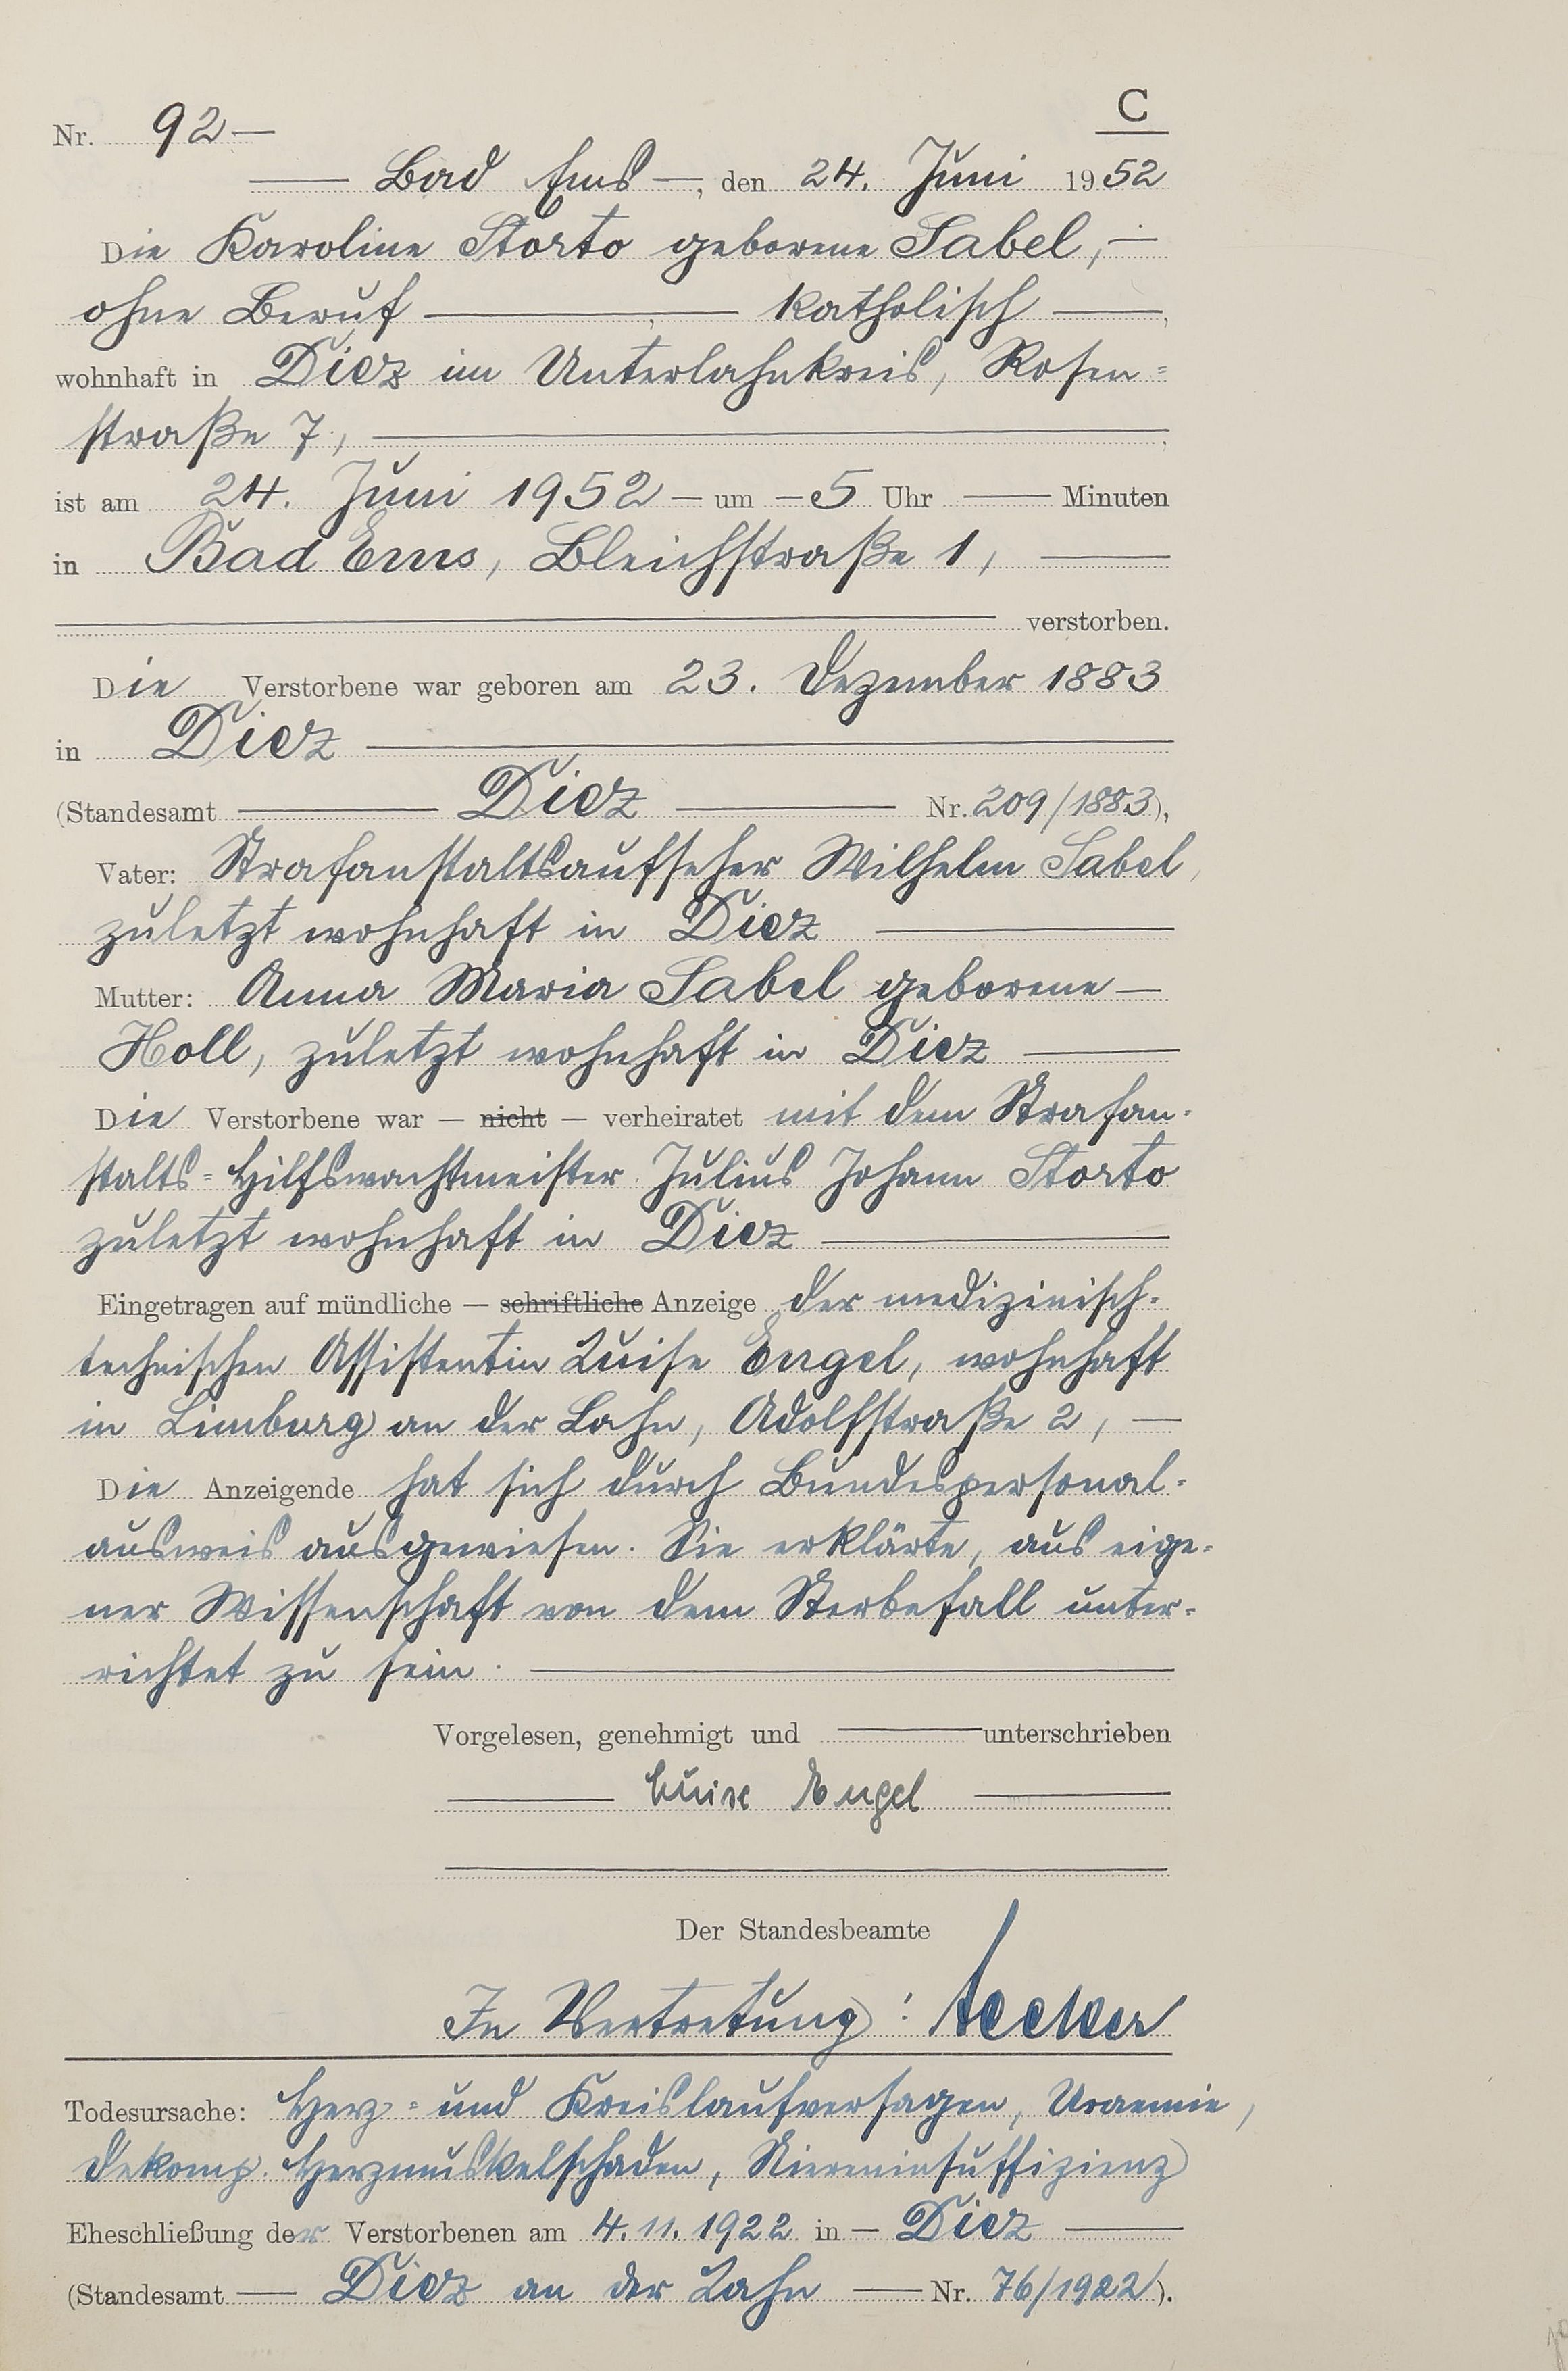 C
Nr. 92 —
— Bad Ems —, den 24. Juni 1952
Die Karoline Storto geborene Sabel, —
ohne Beruf —, — katholisch —,
wohnhaft in Diez im Unterlahnkreis, Rosen=
straße 7, —,
ist am 24. Juni 1952 — um — 5 Uhr — Minuten
in Bad Ems, Bleichstraße 1, —
— verstorben.
Die Verstorbene war geboren am 23. Dezember 1883
in Diez —
(Standesamt — Diez — Nr. 209/1883),
Vater: Strafanstaltsaufseher Wilhelm Sabel,
zuletzt wohnhaft in Diez —
Mutter: Anna Maria Sabel geborene —
Holl, zuletzt wohnhaft in Diez —
Die Verstorbene war — nicht — verheiratet mit dem Strafan-
stalts=Hilfswachtmeister Julius Johann Storto
zuletzt wohnhaft in Diez —
Eingetragen auf mündliche — schriftliche Anzeige der medizinisch-
technischen Assistentin Luise Engel, wohnhaft
in Limburg an der Lahn, Adolfstraße 2, —
Die Anzeigende hat sich durch Bundespersonal-
ausweis ausgewiesen. Sie erklärte, aus eige-
ner Wissenschaft von dem Sterbefall unter-
richtet zu sein. —
Vorgelesen, genehmigt und — unterschrieben
— Luise Engel —
Der Standesbeamte
In Vertretung:
Todesursache: Herz= und Kreislaufversagen, Uraemie,
dekomp. Herzmuskelschaden, Niereninsuffizienz
Eheschließung der Verstorbenen am 4.11.1922 in — Diez —
(Standesamt — Diez an der Lahn — Nr. 76/1922).